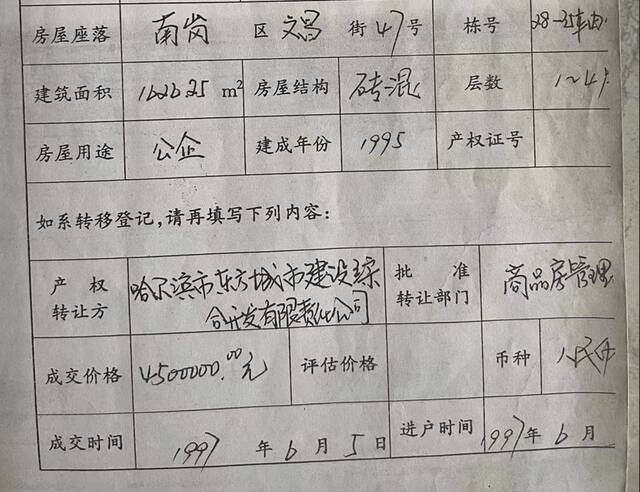 房屋座落 南岗 区 文昌 街 47 号 栋号 28-35车由
建筑面积 1626.25 m² 房屋结构 砖混 层数 1~4
房屋用途 公企 建成年份 1995 产权证号
如系转移登记,请再填写下列内容:
产权转让方 哈尔滨市东方城市建设综 批准转让部门 商品房管理
合开发有限责任公司
成交价格 4500000.00元 评估价格 币种 人民币
成交时间 1997 年 6 月 5 日 进户时间 1997 年 6 月